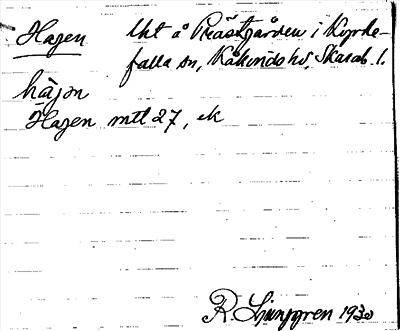 Hagen Uht å Prästgården i Kyrke-
falla sn, Kåkinds hd, Skarab. l.
hàjǝn
Hagen mtl 27, ek
R. Ljunggren 1930